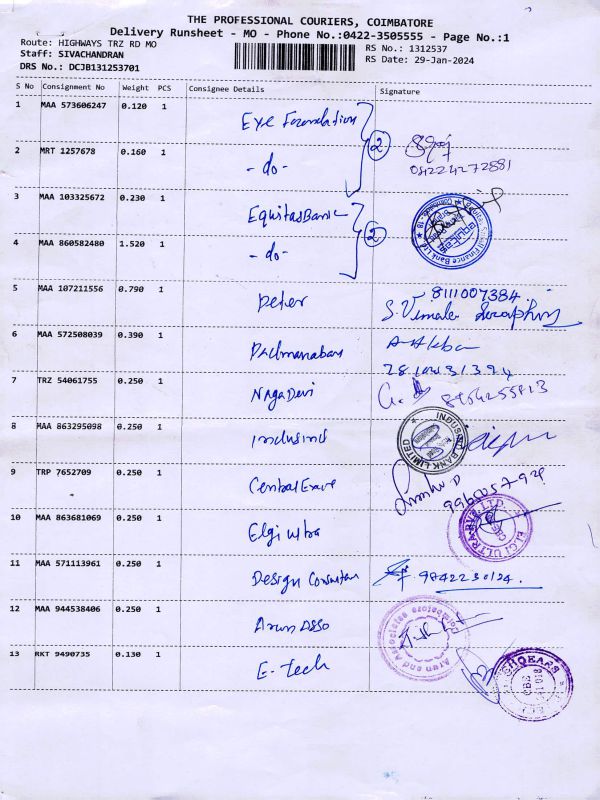 THE PROFESSIONAL COURIERS, COIMBATORE
Delivery Runsheet - MO - Phone No.:0422-3505555 - Page No.:1
Route: HIGHWAYS TRZ RD MO RS No.: 1312537
Staff: SIVACHANDRAN RS Date: 29-Jan-2024
DRS No.: DCJB131253701
S No Consignment No Weight PCS Consignee Details Signature
1 MAA 573606247 0.120 1 Eye Foundation
2
2 MRT 1257678 0.160 1 -do-
04224272881
3 MAA 103325672 0.230 1 EquitasBank
2
4 MAA 860582480 1.520 1 -do-
5 MAA 107211556 0.790 1 peter 8111007384
S. Vimala
6 MAA 572508039 0.390 1 Padmanaban
7 TRZ 54061755 0.250 1 NagaDevi
8 MAA 863295098 0.250 1 Indusind
INDUSIND BANK LIMITED
9 TRP 7652709 0.250 1
10 MAA 863681069 0.250 1 Elgi ultra
ELGI ULTRA PVT. LTD
11 MAA 571113961 0.250 1 Design
12 MAA 944538406 0.250 1 Arun Asso
Arun and Associates
13 RKT 9490735 0.130 1 E-Tech
CBE